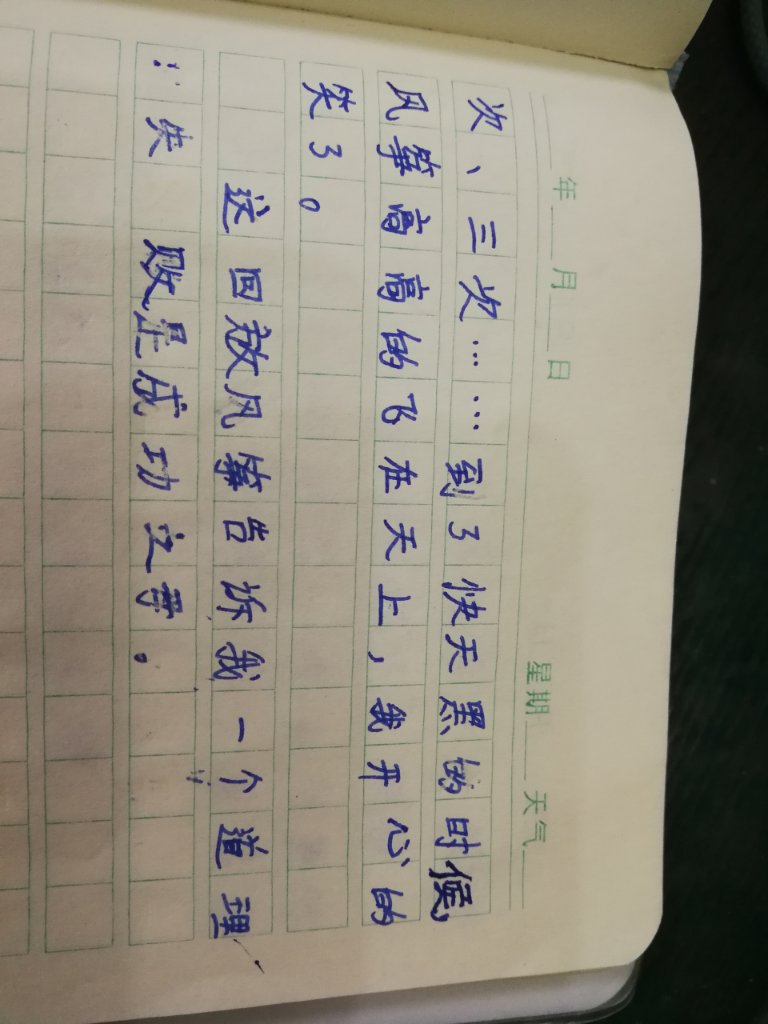 年 月 日 星期 天气
次、三次……到了快天黑的时候,
风筝高高的飞在天上,我开心的
笑了。
这回放风筝告诉我一个道理
:失败是成功之母。